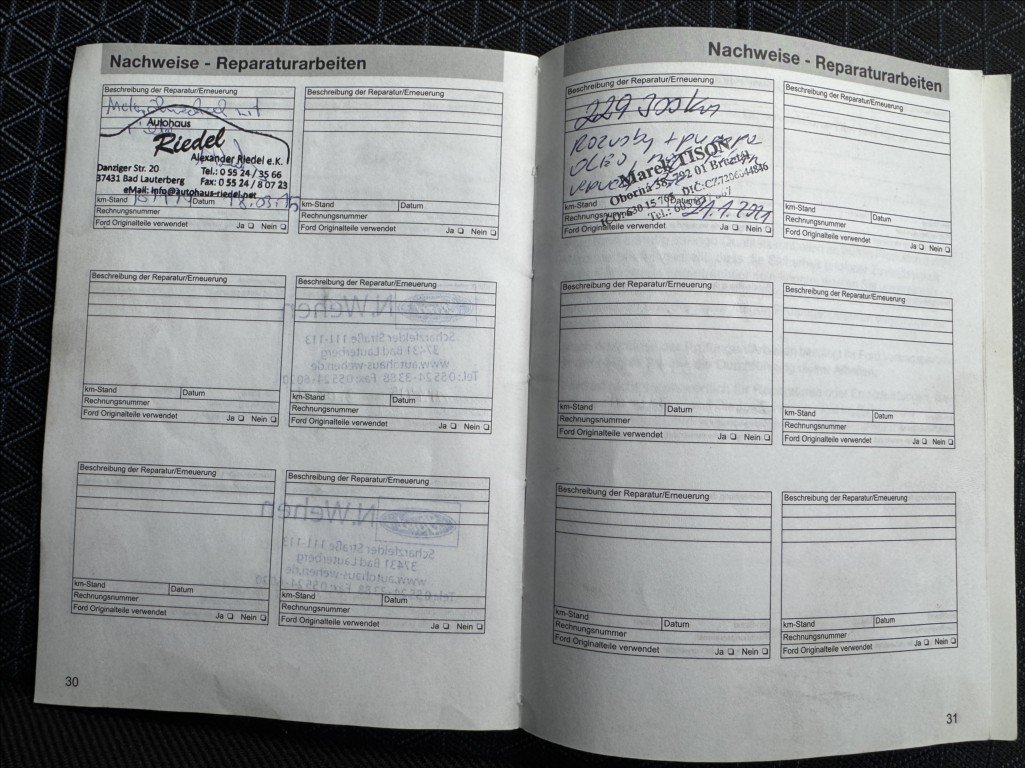 Nachweise - Reparaturarbeiten
Beschreibung der Reparatur/Erneuerung
Autohaus
Riedel
Alexander Riedel e.K.
Danziger Str. 20
Tel.: 0 55 24 / 35 66
37431 Bad Lauterberg
Fax: 0 55 24 / 8 07 23
eMail: info@autohaus-riedel.net
km-Stand
Datum
Rechnungsnummer
Ford Originalteile verwendet Ja Nein
Beschreibung der Reparatur/Erneuerung
km-Stand
Datum
Rechnungsnummer
Ford Originalteile verwendet Ja Nein
Beschreibung der Reparatur/Erneuerung
km-Stand
Datum
Rechnungsnummer
Ford Originalteile verwendet Ja Nein
Beschreibung der Reparatur/Erneuerung
N.Wehen
Scharzfelder Straße 111-113
37431 Bad Lauterberg
www.autohaus-wehen.de
km-Stand
Datum
Rechnungsnummer
Ford Originalteile verwendet Ja Nein
Beschreibung der Reparatur/Erneuerung
km-Stand
Datum
Rechnungsnummer
Ford Originalteile verwendet Ja Nein
Beschreibung der Reparatur/Erneuerung
N.Wehen
Scharzfelder Straße 111-113
37431 Bad Lauterberg
www.autohaus-wehen.de
km-Stand
Datum
Rechnungsnummer
Ford Originalteile verwendet Ja Nein
30
Nachweise - Reparaturarbeiten
Beschreibung der Reparatur/Erneuerung
229 300 km
Rozvody + pumpa
Marek TISON
Oborná 38, 792 01 Bruntál
km-Stand
Datum
21.1.2021
Rechnungsnummer
Ford Originalteile verwendet Ja Nein
Beschreibung der Reparatur/Erneuerung
km-Stand
Datum
Rechnungsnummer
Ford Originalteile verwendet Ja Nein
Beschreibung der Reparatur/Erneuerung
km-Stand
Datum
Rechnungsnummer
Ford Originalteile verwendet Ja Nein
Beschreibung der Reparatur/Erneuerung
km-Stand
Datum
Rechnungsnummer
Ford Originalteile verwendet Ja Nein
Beschreibung der Reparatur/Erneuerung
km-Stand
Datum
Rechnungsnummer
Ford Originalteile verwendet Ja Nein
Beschreibung der Reparatur/Erneuerung
km-Stand
Datum
Rechnungsnummer
Ford Originalteile verwendet Ja Nein
31